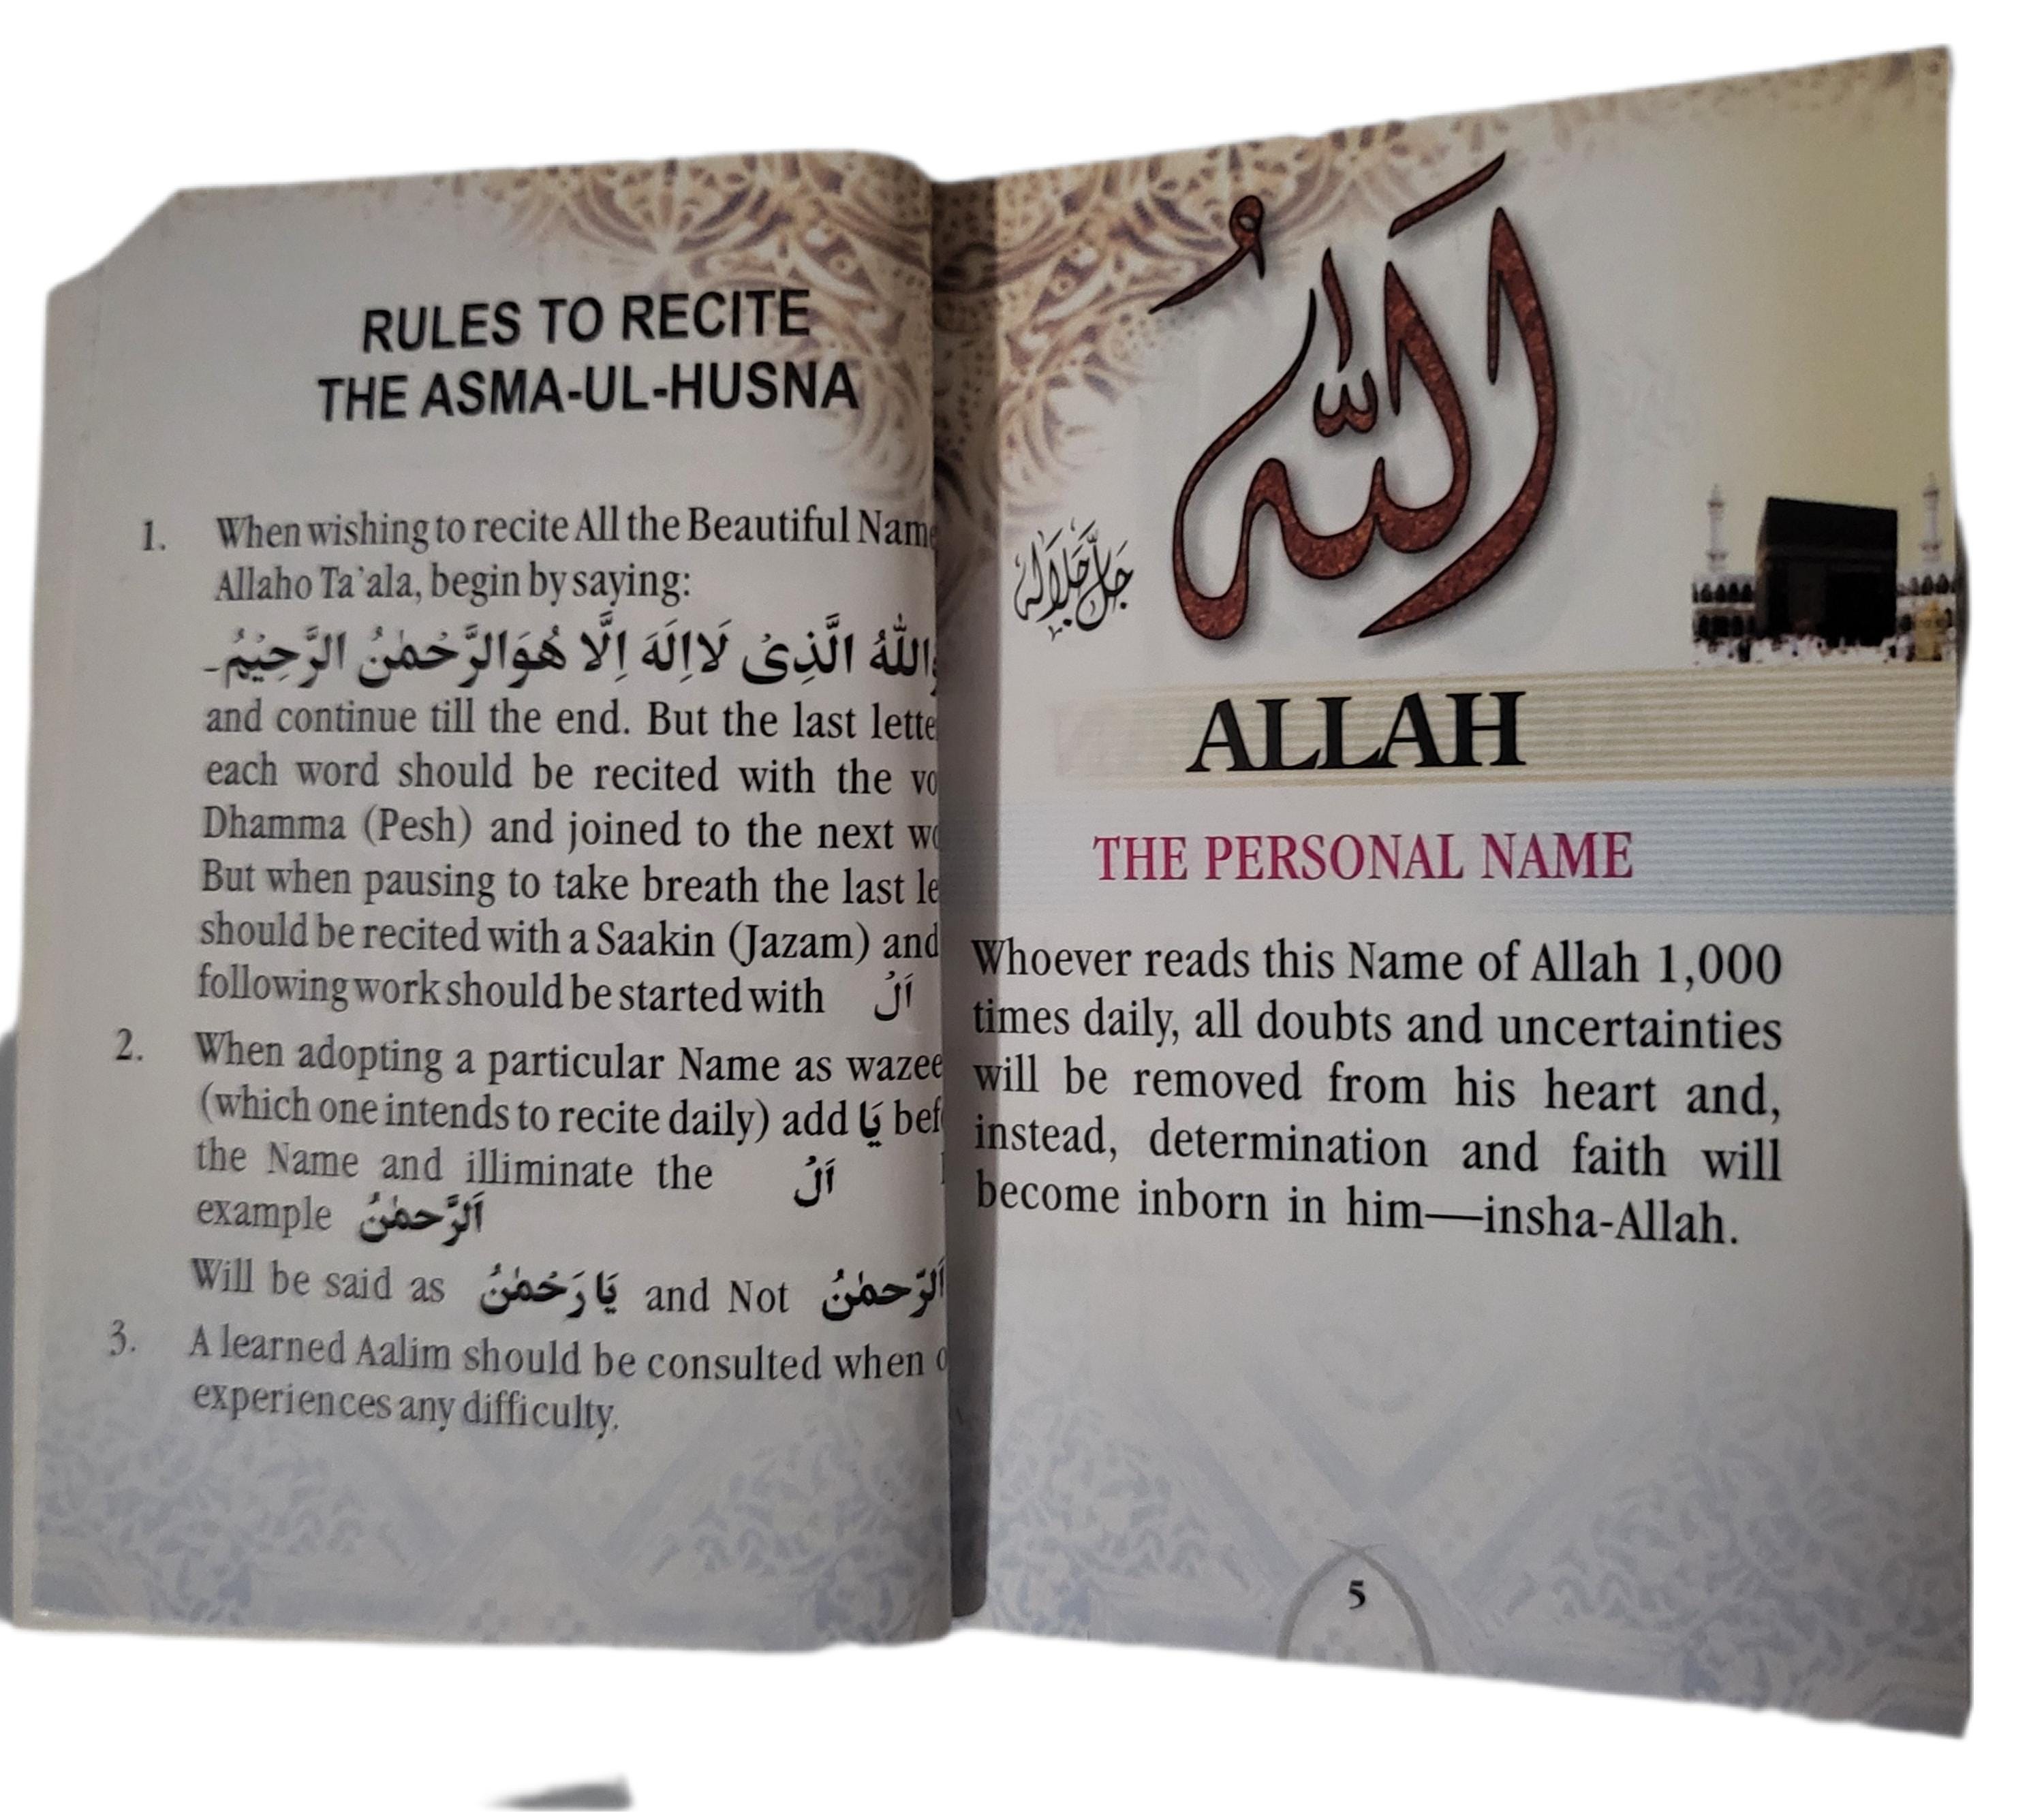 RULES TO RECITE
THE ASMA-UL-HUSNA
1. When wishing to recite All the Beautiful
Allaho Ta'ala, begin by saying:
اللهُ الَّذِىْ لَااِلَهَ اِلَّا هُوَالرَّحْمٰنُ الرَّحِيْمُ۔
and continue till the end. But the last
each word should be recited with the
Dhamma (Pesh) and joined to the next
But when pausing to take breath the last
should be recited with a Saakin (Jazam) and
following work should be started with اَلْ
2. When adopting a particular Name as
(which one intends to recite daily) add يَا
the Name and illiminate the اَلْ
example اَلرَّحمٰنُ
Will be said as يَا رَحْمٰنُ and Not اَلرَّحمٰنُ
3. A learned Aalim should be consulted when
experiences any difficulty.
اَللّٰهُ
جَلَّ جَلَالَهُ
ALLAH
THE PERSONAL NAME
Whoever reads this Name of Allah 1,000
times daily, all doubts and uncertainties
will be removed from his heart and,
instead, determination and faith will
become inborn in him—insha-Allah.
5